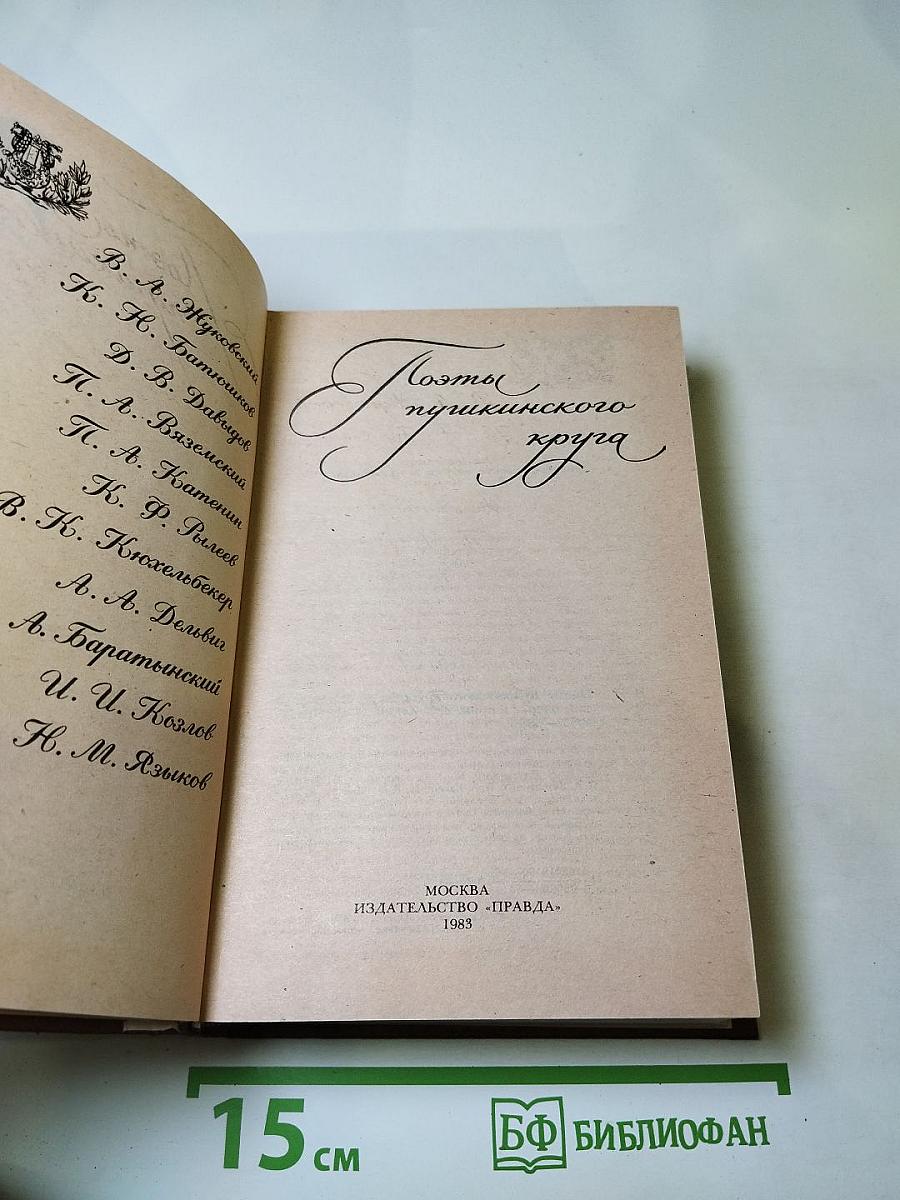 В. А. Жуковский
К. Н. Батюшков
Д. В. Давыдов
П. А. Вяземский
П. А. Катенин
К. Ф. Рылеев
В. К. Кюхельбекер
А. А. Дельвиг
А. Баратынский
И. И. Козлов
Н. М. Языков
Поэты
пушкинского
круга
МОСКВА
ИЗДАТЕЛЬСТВО «ПРАВДА»
1983
15 см
БФ БИБЛИОФАН